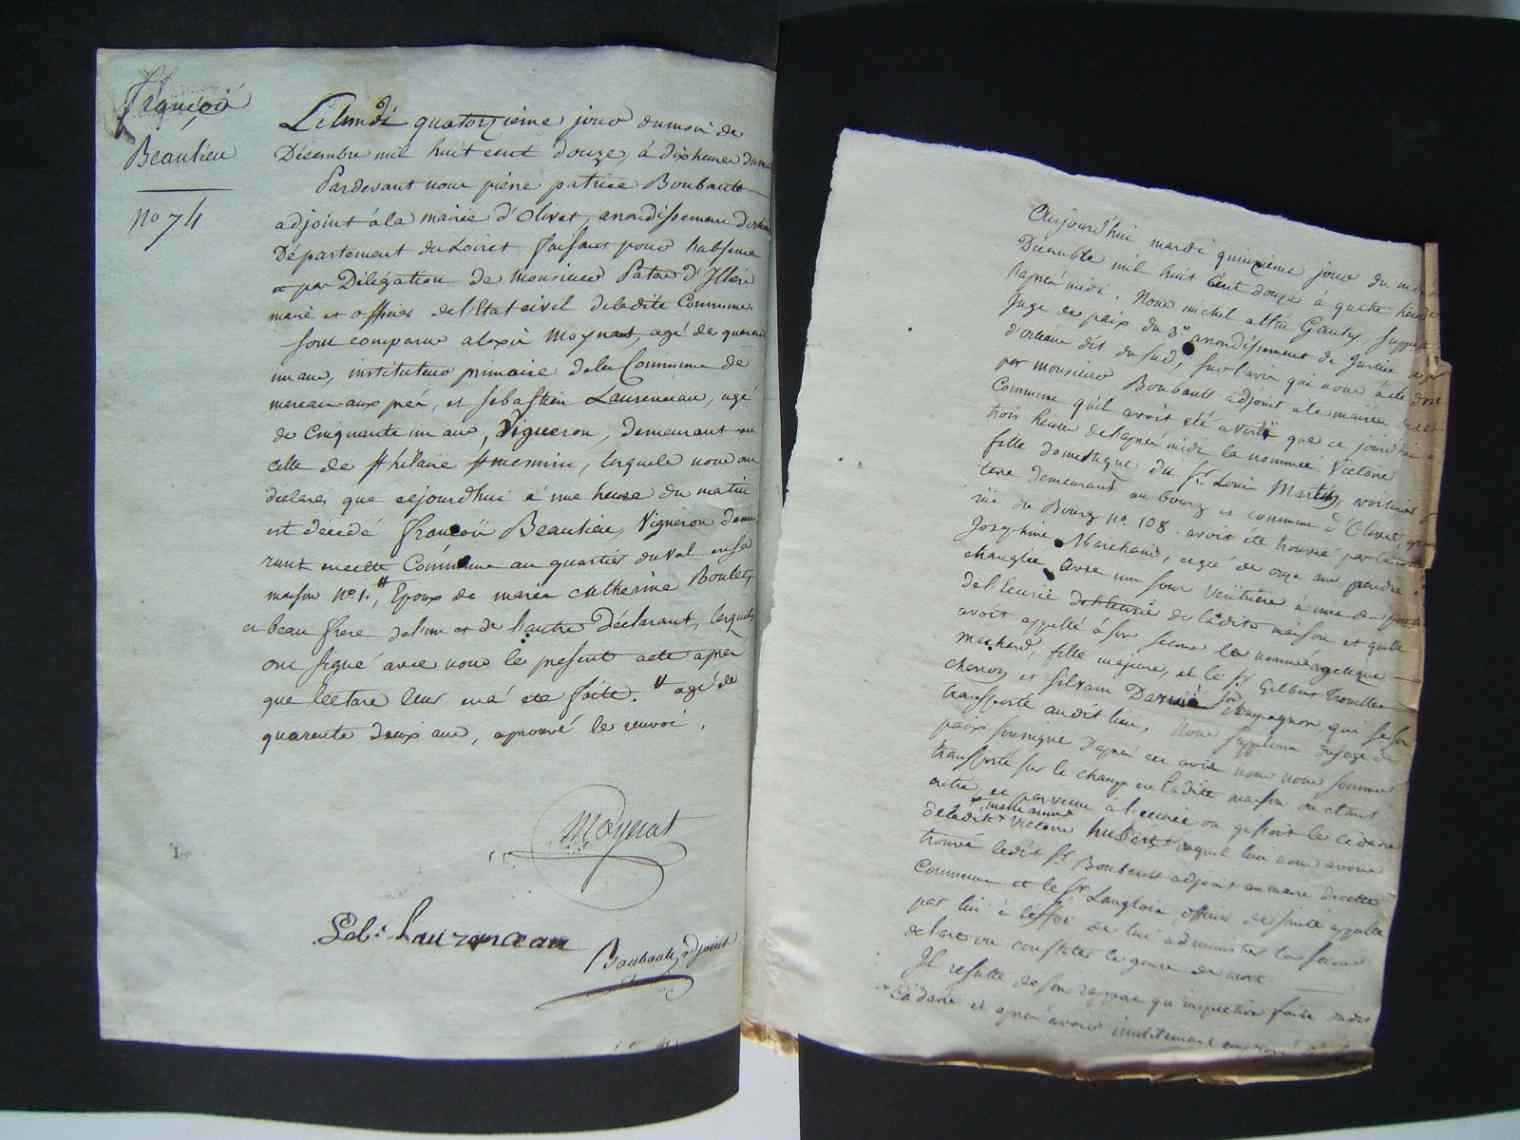 François
Beaulieu
No 74
Le lundi quatorzieme jour du mois de
Décembre mil huit cent douze, à dix heures du
Pardevant nous pierre patrice Boubault
adjoint à la mairie d'Olivet, arrondissement d'orléans
Département du Loiret faisant pour l'absence
et par Délégation de Monsieur Patas d'Illiers
maire et officier de l'Etat civil de ladite Commune
sont comparu alexis Moynat, agé de quarante
un ans, instituteur primaire de la Commune de
mareau aux prés, et sebastien Laurenceau, agé
de Cinquante un ans, Vigneron, demeurant en
celle de st hilaire st mesmin, lesquels nous ont
declarés que cejourdhui à une heure du matin
est decedé francois Beaulieu, Vigneron demeu
rant en cette Commune au quartier du Val en sa
maison no 1. # Epoux de marie catherine Boulet,
et beau frere de l'un et de l'autre Déclarant, lesquels
ont signé avec nous le present acte après
que lecture leur en a été faite. # agé de
quarente deux ans, aprouvé le renvoi.
Moynat
Seb. Laurenceau
Boubault adjoint
Aujourd'hui mardi quinzieme jour du mois
Decembre mil huit cent douze à quatre heures
l'après midi. Nous michel Gauty, suppléant
Juge de paix du 3e arrondissement de Justice de
d'orleans dit du sud, sur l'avis qui nous à été donné
par monsieur Boubault adjoint à la mairie
Commune qu'il avoit été averti que ce jourd'hui à
trois heures de l'après midi la nommée Victoire
fille domestique du sr Louis Martin, voiturier
terre demeurant au bourg et commune d'Olivet,
du Bourg no. 108. avoit été trouvée par
Josephine Marchand, agée de onze ans pendue
etranglée avec une
de l'Ecurie de ladite maison et qu'elle
avoit appellé à son secours la nommée angelique
marchand, fille majeure, et le sr Gilbert
charron et silvain son compagnon, que
transporté audit lieu, Nous suppléant du juge de
paix soussigné d'après cet avis nous nous sommes
transporté sur le champ en ladite maison ou étant
entré, et parvenu à l'ecurie ou gissoit le cadavre
marie anne
de ladite Victoire hubert auquel lieu nous avons
trouvé ledit sr Boubault adjoint au maire de cette
Commune et le sr Langlois officier de santé appellé
par lui à l'effet de lui administrer les secours
de l'art ou constater le genre de mort
Il resulte de son rapport qu'inspection faite dudit
cadavre et après avoir inutilement employé